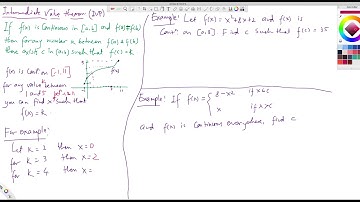 Intermediate Value theorem (IVT)
If f(x) is continuous in [a,b] and f(a)≠f(b)
then for any number k between f(a) & f(b)
there exist c in (a,b) such that
f(c)=k
f(x) is cont on [-1,11]
for any value between
you can find x such that
f(x)=k
For example:
Let k=2 then x=0
for k=3 then x=2
for k=4 then x=
Example: Let f(x)=x²+3x+2 and f(x) is
cont on [0,5]. Find c such that f(c)=35
Example: If f(x)={ 3-x² if x≤c
x if x>c
and f(x) is continuous everywhere, find c